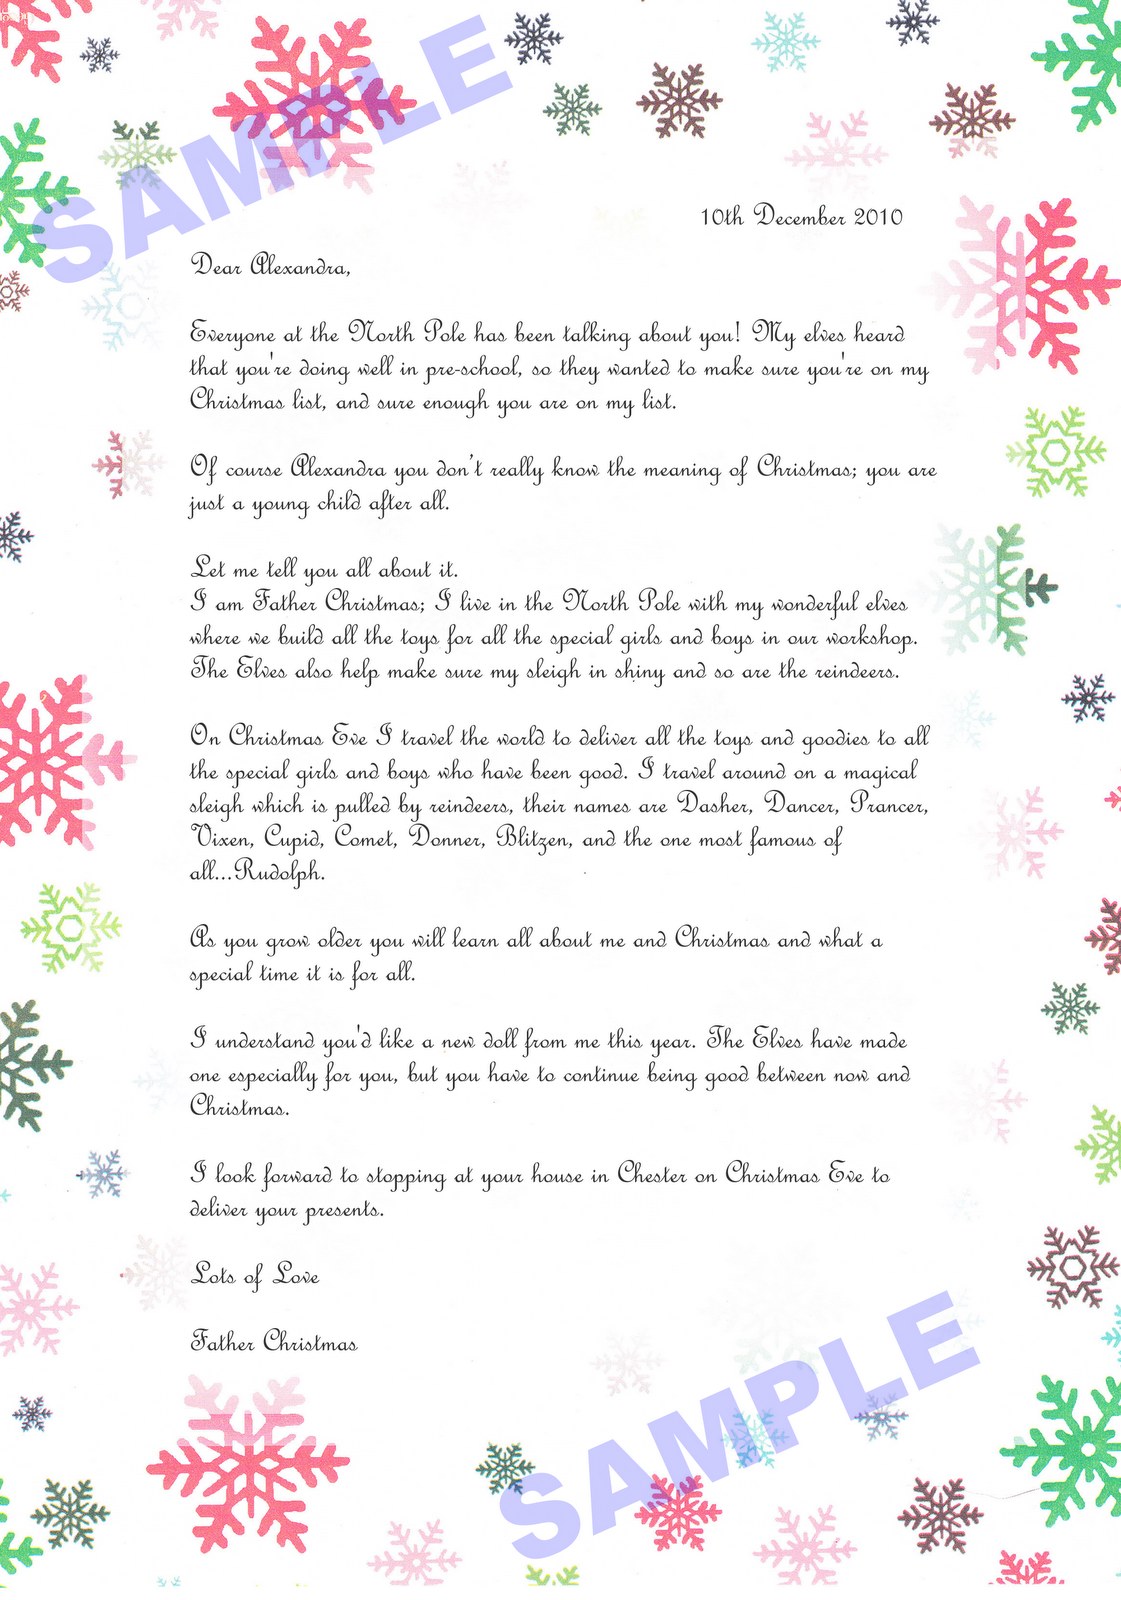 SAMPLE
10th December 2010
Dear Alexandra,
Everyone at the North Pole has been talking about you! My elves heard
that you're doing well in pre-school, so they wanted to make sure you're on my
Christmas list, and sure enough you are on my list.
Of course Alexandra you don't really know the meaning of Christmas; you are
just a young child after all.
Let me tell you all about it.
I am Father Christmas; I live in the North Pole with my wonderful elves
where we build all the toys for all the special girls and boys in our workshop.
The Elves also help make sure my sleigh in shiny and so are the reindeers.
On Christmas Eve I travel the world to deliver all the toys and goodies to all
the special girls and boys who have been good. I travel around on a magical
sleigh which is pulled by reindeers, their names are Dasher, Dancer, Prancer,
Vixen, Cupid, Comet, Donner, Blitzen, and the one most famous of
all...Rudolph.
As you grow older you will learn all about me and Christmas and what a
special time it is for all.
I understand you'd like a new doll from me this year. The Elves have made
one especially for you, but you have to continue being good between now and
Christmas.
I look forward to stopping at your house in Chester on Christmas Eve to
deliver your presents.
Lots of Love
Father Christmas
SAMPLE